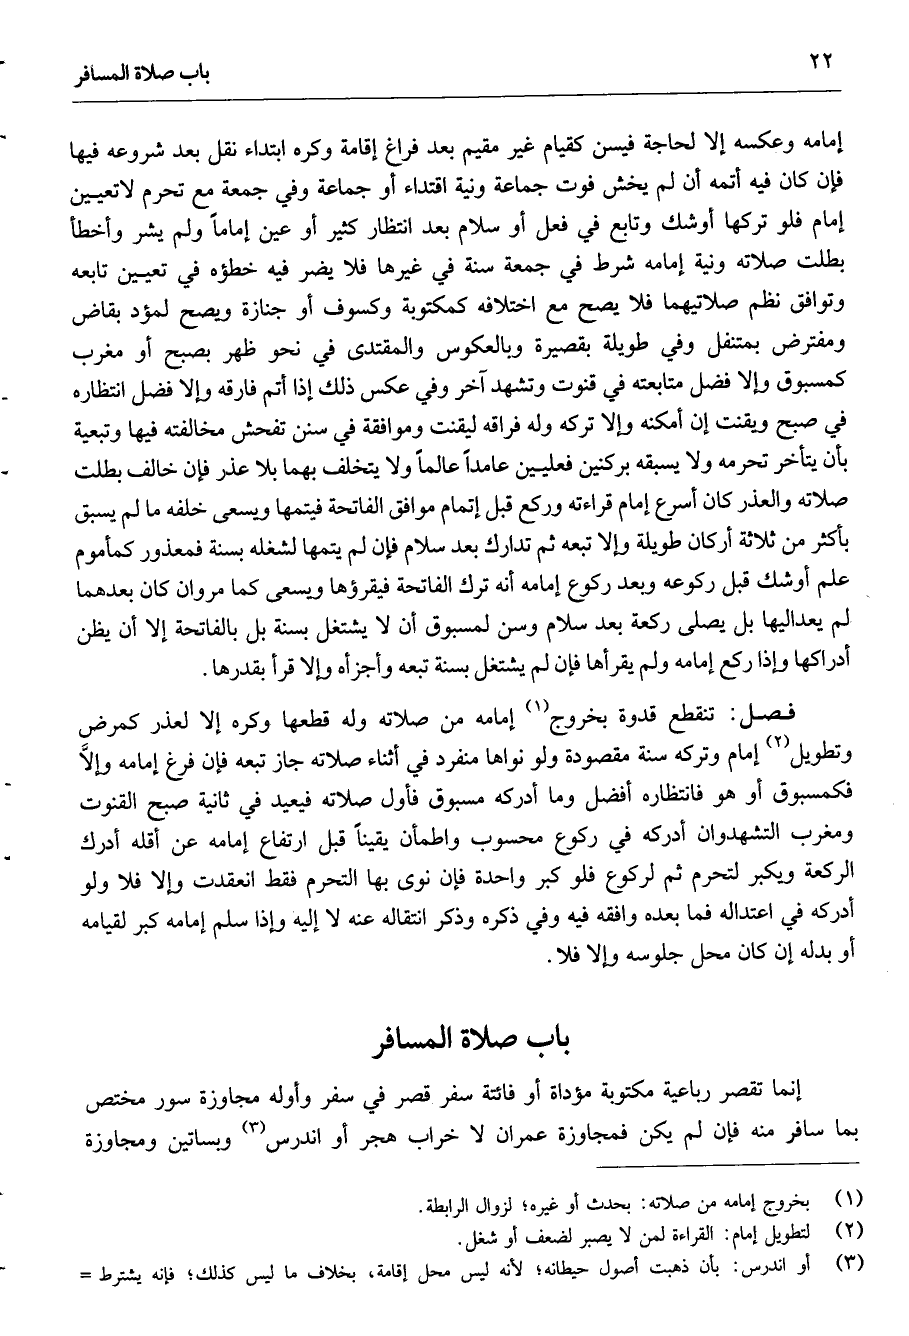 ٢٢
باب صلاة المسافر
إمامه وعكسه إلا لحاجة فيسن كقيام غير مقيم بعد فراغ إقامة وكره ابتداء نقل بعد شروعه فيها
فإن كان فيه أتمه أن لم يخش فوت جماعة ونية اقتداء أو جماعة وفي جمعة مع تحرم لاتعيين
إمام فلو تركها أوشك وتابع في فعل أو سلام بعد انتظار كثير أو عين إماماً ولم يشر وأخطأ
بطلت صلاته ونية إمامه شرط في جمعة سنة في غيرها فلا يضر فيه خطؤه في تعيين تابعه
وتوافق نظم صلاتيهما فلا يصح مع اختلافه كمكتوبة وكسوف أو جنازة ويصح لمؤد بقاض
ومفترض بمتنفل وفي طويلة بقصيرة وبالعكوس والمقتدى في نحو ظهر بصبح أو مغرب
كمسبوق وإلا فضل متابعته في قنوت وتشهد آخر وفي عكس ذلك إذا أتم فارقه وإلا فضل انتظاره
في صبح ويقنت إن أمكنه وإلا تركه وله فراقه ليقنت وموافقة في سنن تفحش مخالفته فيها وتبعية
بأن يتأخر تحرمه ولا يسبقه بركنين فعليين عامداً عالماً ولا يتخلف بهما بلا عذر فإن خالف بطلت
صلاته والعذر كان أسرع إمام قراءته وركع قبل إتمام موافق الفاتحة فيتمها ويسعى خلفه ما لم يسبق
بأكثر من ثلاثة أركان طويلة وإلا تبعه ثم تدارك بعد سلام فإن لم يتمها لشغله بسنة فمعذور كمأموم
علم أوشك قبل ركوعه وبعد ركوع إمامه أنه ترك الفاتحة فيقرؤها ويسعى كما مروان كان بعدهما
لم يعداليها بل يصلى ركعة بعد سلام وسن لمسبوق أن لا يشتغل بسنة بل بالفاتحة إلا أن يظن
أدراكها وإذا ركع إمامه ولم يقرأها فإن لم يشتغل بسنة تبعه وأجزأه وإلا قرأ بقدرها.
فـصـل: تنقطع قدوة بخروج(١) إمامه من صلاته وله قطعها وكره إلا لعذر كمرض
وتطويل(٢) إمام وتركه سنة مقصودة ولو نواها منفرد في أثناء صلاته جاز تبعه فإن فرغ إمامه وإلاَّ
فكمسبوق أو هو فانتظاره أفضل وما أدركه مسبوق فأول صلاته فيعيد في ثانية صبح القنوت
ومغرب التشهدوان أدركه في ركوع محسوب واطمأن يقيناً قبل ارتفاع إمامه عن أقله أدرك
الركعة ويكبر لتحرم ثم لركوع فلو كبر واحدة فإن نوى بها التحرم فقط انعقدت وإلا فلا ولو
أدركه في اعتداله فما بعده وافقه فيه وفي ذكره وذكر انتقاله عنه لا إليه وإذا سلم إمامه كبر لقيامه
أو بدله إن كان محل جلوسه وإلا فلا.
باب صلاة المسافر
إنما تقصر رباعية مكتوبة مؤداة أو فائتة سفر قصر في سفر وأوله مجاوزة سور مختص
بما سافر منه فإن لم يكن فمجاوزة عمران لا خراب هجر أو اندرس(٣) وبساتين ومجاوزة
(١) بخروج إمامه من صلاته: بحدث أو غيره؛ لزوال الرابطة.
(٢) لتطويل إمام: القراءة لمن لا يصبر لضعف أو شغل.
(٣) أو اندرس: بأن ذهبت أصول حيطانه؛ لأنه ليس محل إقامة، بخلاف ما ليس كذلك؛ فإنه يشترط =